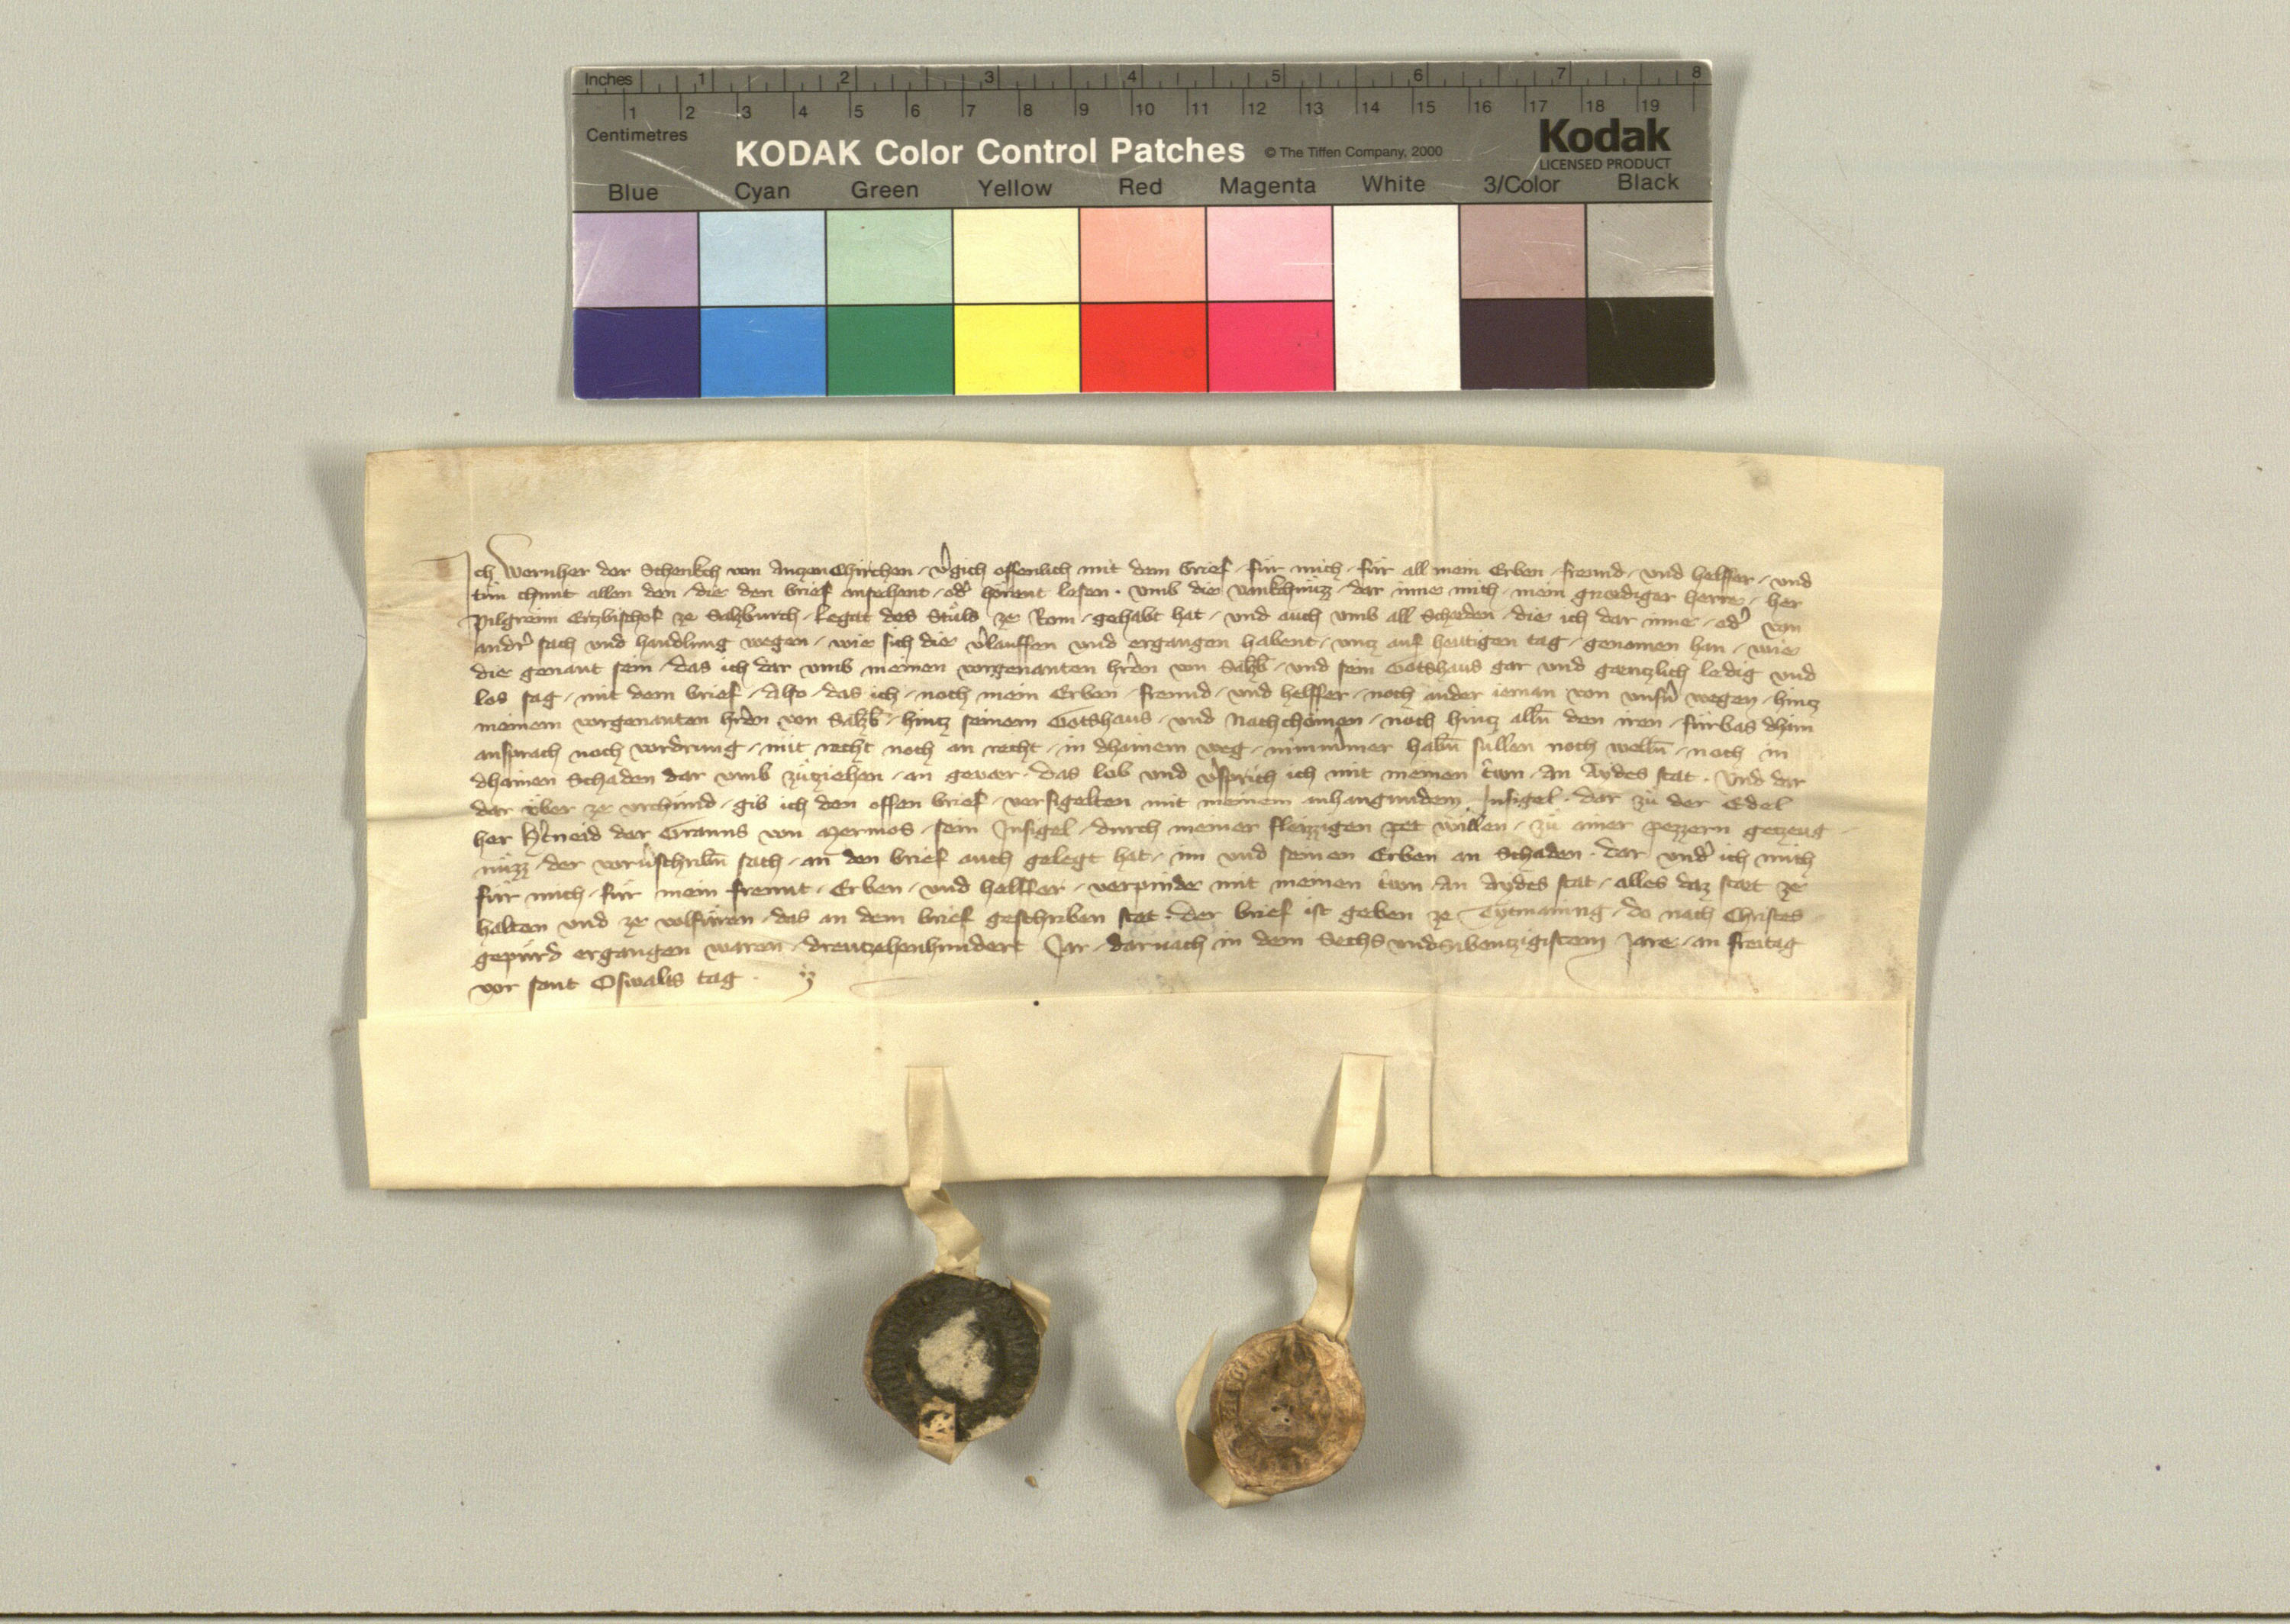 Inches 1 2 3 4 5 6 7 8
1 2 3 4 5 6 7 8 9 10 11 12 13 14 15 16 17 18 19
Centimetres
KODAK Color Control Patches © The Tiffen Company, 2000 Kodak
LICENSED PRODUCT
Blue Cyan Green Yellow Red Magenta White 3/Color Black
Ich Wernher der Schenkch von Anzenchirchen / v̾gich offenlich mit dem brief / für mich / für all mein Erben / freund / und helffer / und
tün chunt allen den / die den brief ansehent / od̾ hörent lesen . umb die vankchnüzz / dar inne mich / mein gnediger herre / her
Pilgreim Ertzbischof ze Salzburch / Legat des Stůls ze Rom / gehabt hat / und auch umb all scheden / die ich dar inne / od̾ von
andr̾ sach und handlung wegen / wie sich die v̾lauffen und ergangen habent / untz auf heutigen tag / genomen han / wie
die genant sein / das ich dar umb meinen vorgenanten hr̾en von Salzb̄ / und sein Gotshaus gar und gentzlich ledig und
los sag / mit dem brief / Also / das ich / noch mein Erben / freund / und helffer / noch ander ieman von unsr̾ wegen / hintz
meinem vorgenanten hr̾en von Salzb̄ / hintz seinem Gotshaus / und Nachchomen / noch hintz alln̄ den iren / fürbas dhain
ansprach noch vordrung / mit recht noch an recht / in dhainem weg / nimmmer habn̄ süllen noch welln̄ / noch in
dhainen Schaden dar umb zůziehen / an gever . Das lob und v̾sprich ich mit meinen tr̾wn / An Aydes stat . Und dar
dar über ze urchünd / gib ich den offen brief / versigelten mit meinem anhangundem Insigel . dar zů der Edel
her H̾tneid der Grauns von Mermos / sein Insigel / durch meiner fleizzigen pet willen / zů ainer pezzern getzeug
nüzz / der vorv̾schribn̄ sach / an den brief auch gelegt hat / im und seinen Erben an Schaden . dar und̾ ich mich
für mich / für mein freunt / Erben / und helffer / verpinde mit meinen tr̾wn An Aydes stat / alles daz stet ze
halten und ze volfüren / das an dem brief geschriben stet . Der brief ist geben ze Tytmaning / do nach Christes
gepürd ergangen waren / dreutzehenhundert Jar / darnach in dem Sechs undSibentzigistem Jare / an freitag
vor sant Oswalts tag .